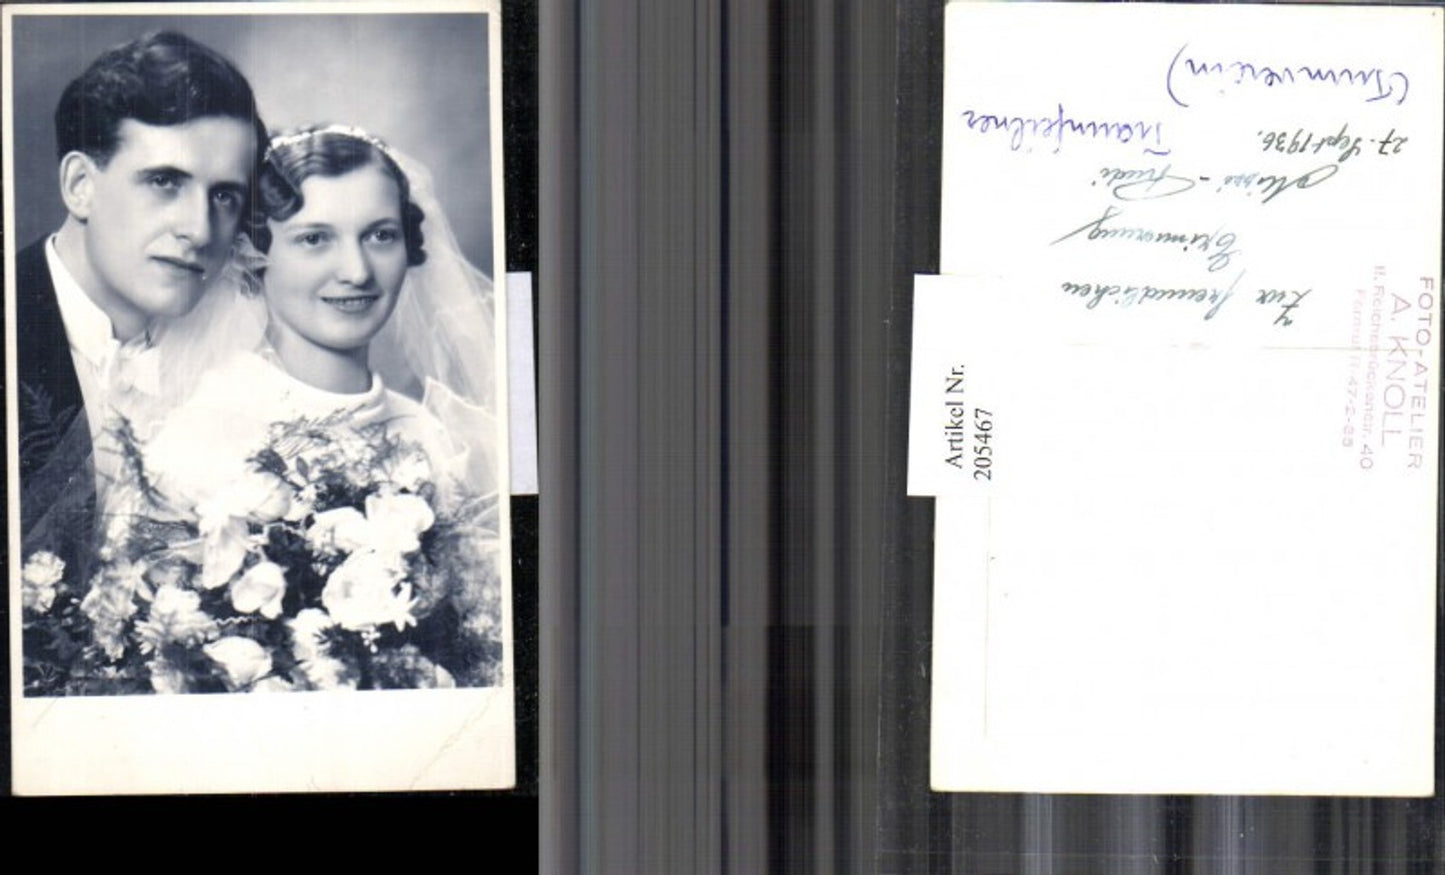 Zur freundlichen
Erinnerung
Mizzi - Trudi
27. Sept 1936.
Traunfellner
(Turnverein)
FOTO-ATELIER
A. KNOLL
II. Reichsbrückenstr. 40
Fernruf R-47-2-85
Artikel Nr.
205467